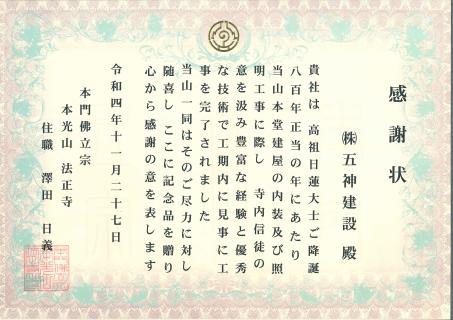 感謝状
㈱五神建設 殿
貴社は 高祖日蓮大士ご降誕
八百年正当の年にあたり
当山本堂建屋の内装及び照
明工事に際し 寺内信徒の
意を汲み豊富な経験と優秀
な技術で工期内に見事に工
事を完了されました
当山一同はそのご尽力に対し
随喜し ここに記念品を贈り
心から感謝の意を表します
令和四年十一月二十七日
本門佛立宗
本光山 法正寺
住職 澤田 日義